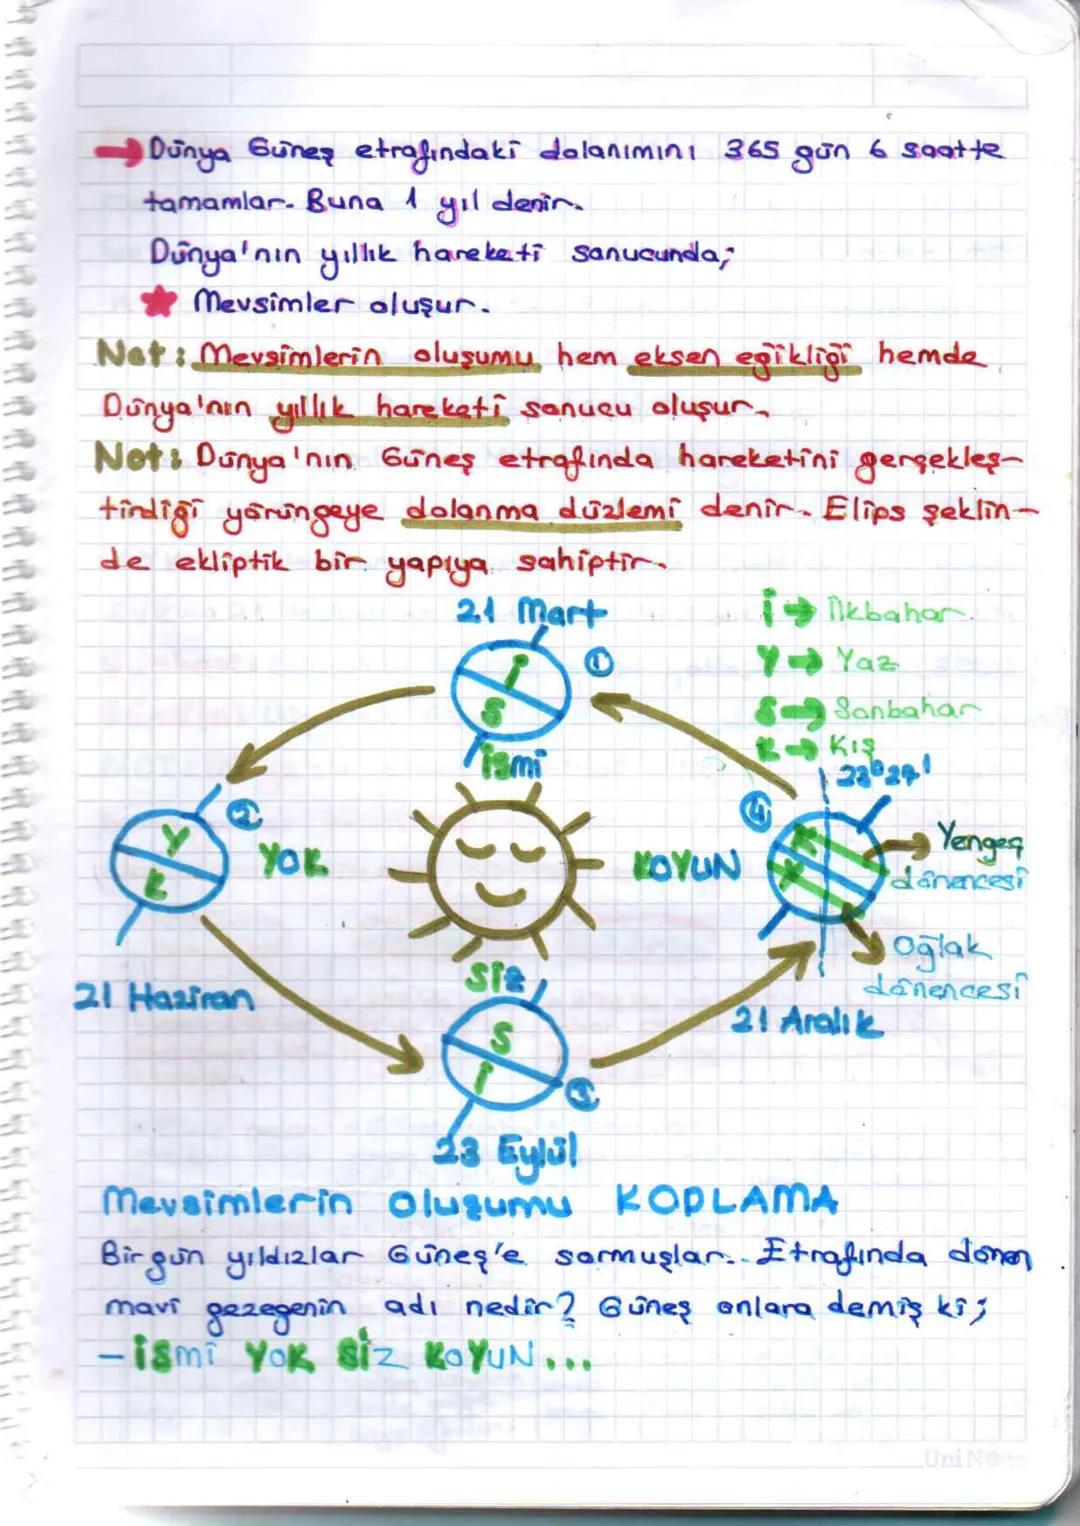 Dünya Güneş etrafındaki dolanımını 365 gün 6 saatte
tamamlar. Buna 1 yıl denir.
Dünya'nın yıllık hareketi sonucunda;
Mevsimler oluşur.
Not: Mevsimlerin oluşumu hem eksen eğikliği hemde
Dünya'nın yıllık hareketi sonucu oluşur.
Not: Dünya'nın Güneş etrafında hareketini gerçekleş-
tirdiği yörüngeye dolanma düzlemi denir. Elips şeklin-
de ekliptik bir yapıya sahiptir.
21 Mart
İ → İlkbahar
Y → Yaz
S → Sonbahar
K → Kış
1
İ
S
ismi
23°27'
2
Y
K
YOK
KOYUN
4
K
Y
Yengeç
dönencesi
Oğlak
dönencesi
21 Haziran
SİZ
S
İ
3
21 Aralık
23 Eylül
Mevsimlerin Oluşumu KODLAMA
Birgün yıldızlar Güneş'e sormuşlar.. Etrafında dönen
mavi gezegenin adı nedir? Güneş onlara demiş ki;
- İSMİ YOK SİZ KOYUN...
UniNote